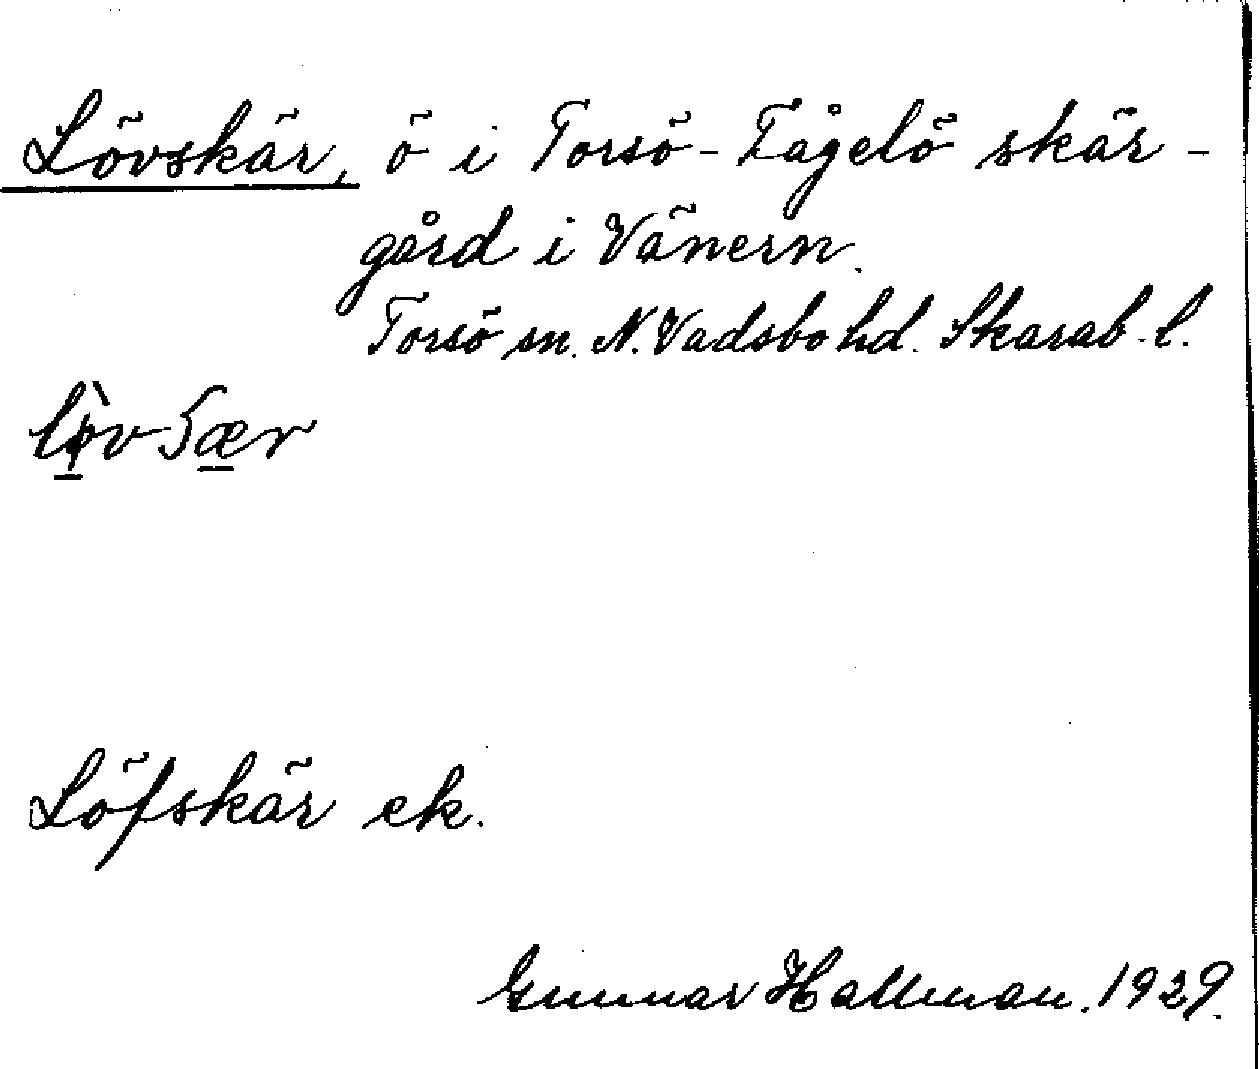 Lövskär, ö i Torsö-Fågelö skär-
gård i Vänern.
Torsö sn. N. Vadsbo hd. Skarab. l.
Löfskär ek.
Gunnar Hallman. 1929.